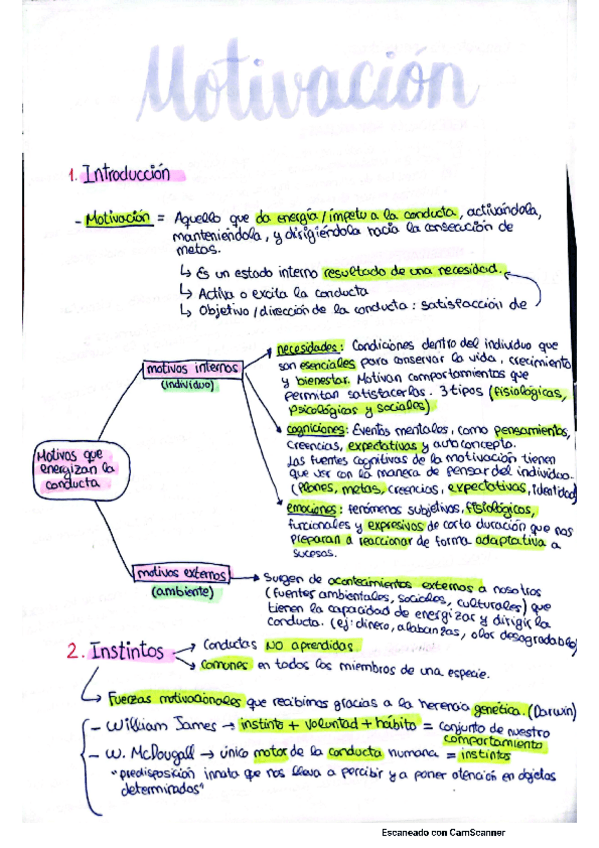 Motivación
1. Introducción
- Motivación = Aquello que da energía / ímpetu a la conducta, activándola,
manteniéndola, y dirigiéndola hacia la consecución de
metas.
↳ Es un estado interno resultado de una necesidad.
↳ Activa o excita la conducta
↳ Objetivo / dirección de la conducta : satisfacción de
Motivos que
energizan la
conducta
motivos internos
(individuo)
necesidades: Condiciones dentro del individuo que
son esenciales para conservar la vida, crecimiento
y bienestar. Motivan comportamientos que
permitan satisfacerlas. 3 tipos (fisiológicas,
psicológicas y sociales)
cogniciones: Eventos mentales, como pensamientos,
creencias, expectativas y autoconcepto.
Las fuentes cognitivas de la motivación tienen
que ver con la manera de pensar del individuo.
(Planes, metas, creencias, expectativas, identidad)
emociones: fenómenos subjetivos, fisiológicos,
funcionales y expresivos de corta duración que nos
preparan a reaccionar de forma adaptativa a
sucesos.
motivos externos
(ambiente)
Surgen de acontecimientos externos a nosotros
(fuentes ambientales, sociales, culturales) que
tienen la capacidad de energizar y dirigir la
conducta. (ej: dinero, alabanzas, olor desagradable)
2. Instintos → Conductas NO aprendidas.
→ comunes en todos los miembros de una especie.
↳ Fuerzas motivacionales que recibimos gracias a la herencia genética. (Darwin)
- William James → instinto + voluntad + hábito = conjunto de nuestro
comportamiento
- W. McDougall → único motor de la conducta humana = instintos
"predisposición innata que nos lleva a percibir y a poner atención en objetos
determinados"
Escaneado con CamScanner